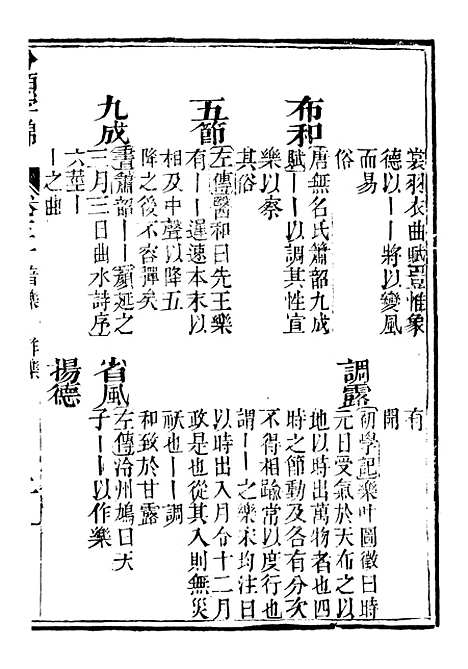 裳羽衣曲賦豈惟象
德以ーー將以變風
而易
俗
布和
唐無名氏簫韶九成
賦ーー以調其性宣
樂以察
其俗
五節
左傳醫和曰先王樂
有ーー遲速本末以
相及中聲以降五
降之後不容彈矣
九成
書簫韶ーー顏延之
三月三日曲水詩序
六莖ー
ー之曲
有
開
調露
初學記樂叶圖徵曰時
元日受氣於天布之以
地以時出萬物者也四
時之節動及各有分次
不得相踰常以度行也
謂ーー之樂宋均注曰
以時出入月令十二月
政是也從其入則無災
祅也ーー調
和致於甘露
省風
左傳泠州鳩曰天
子ーー以作樂
揚德
音樂 作樂